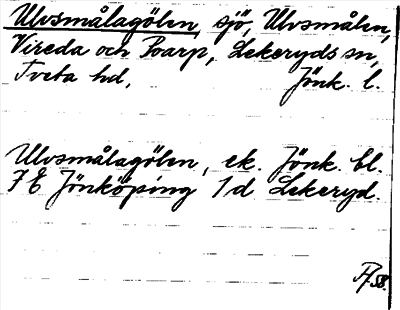 Ulvsmålagölen, sjö, Ulvsmålen,
Vireda och Poarp, Lekeryds sn,
Tveta hd, Jönk. l.
Ulvsmålagölen, ek. Jönk. bl.
7 E Jönköping 1d Lekeryd.
58.